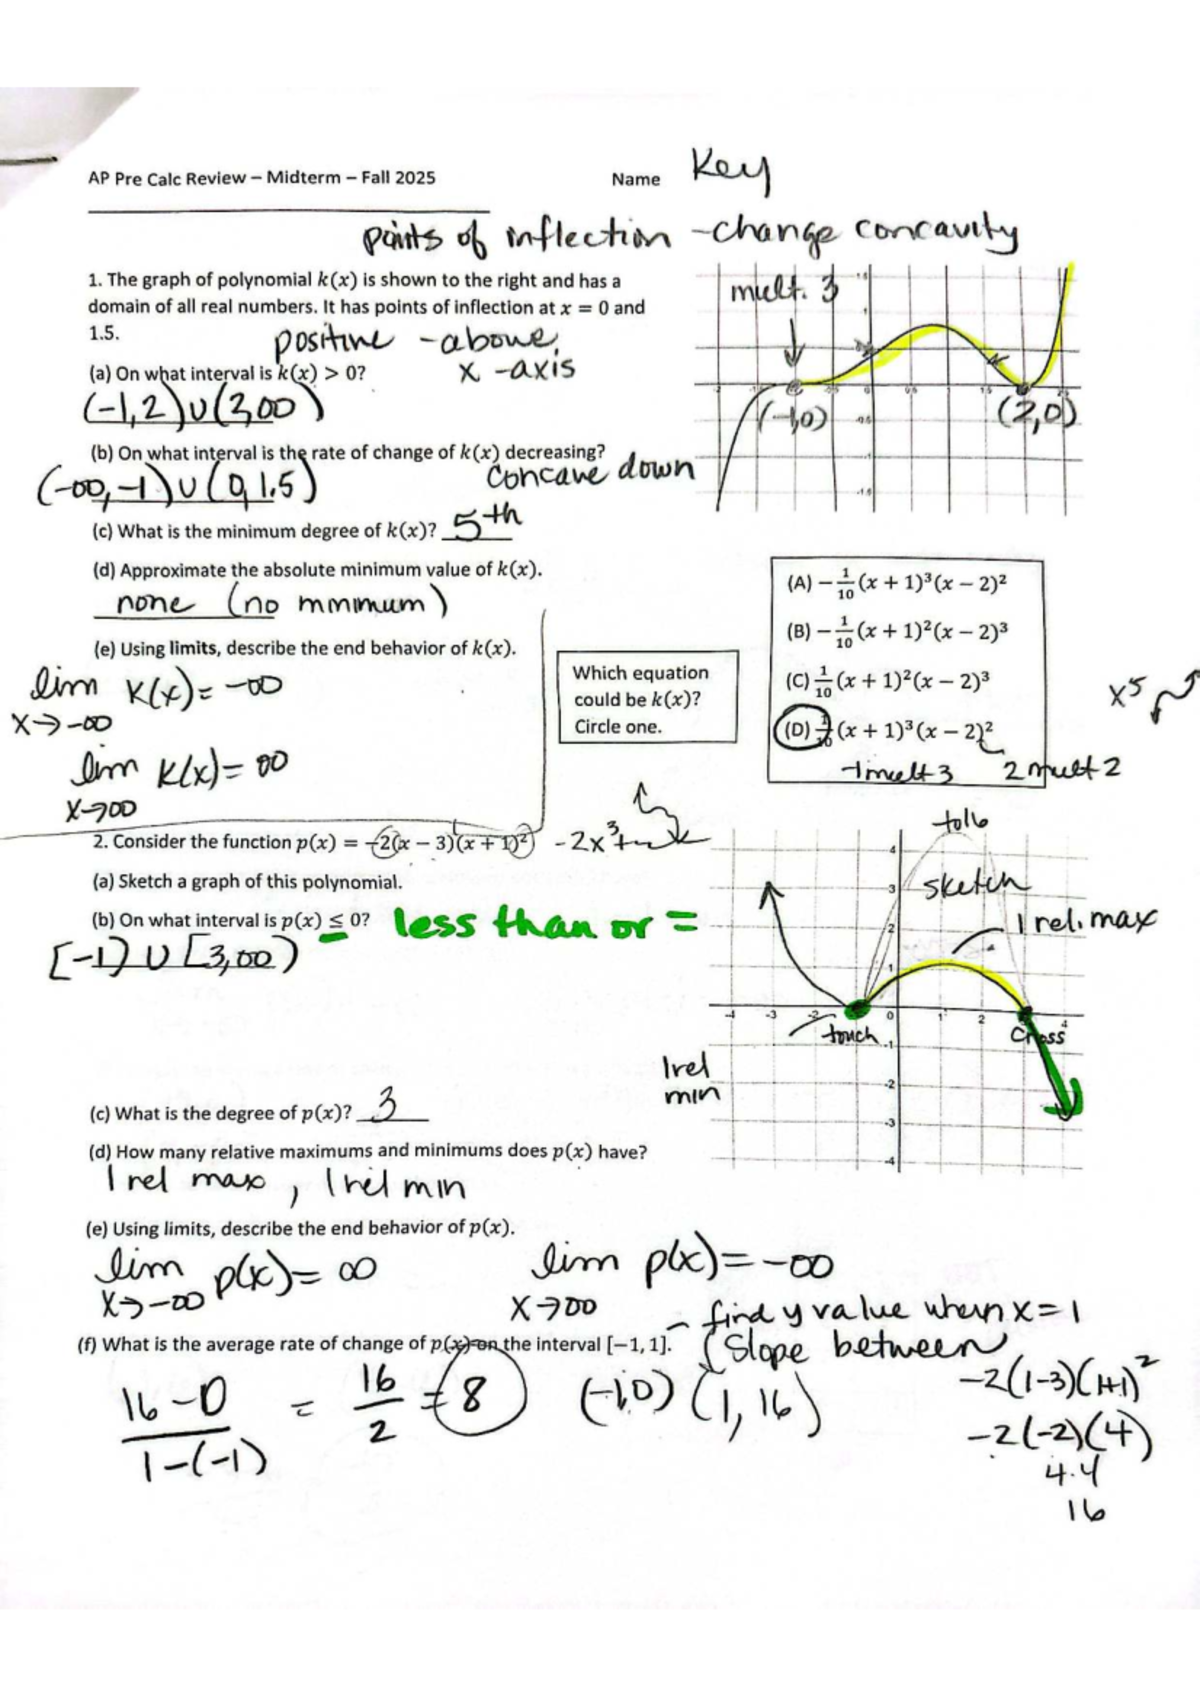 AP Pre Calc Review – Midterm – Fall 2025
Name Key
points of inflection - change concavity
1. The graph of polynomial k(x) is shown to the right and has a
domain of all real numbers. It has points of inflection at x = 0 and
1.5.
positive - above
x-axis
(a) On what interval is k(x) > 0?
(-1,2) ∪ (2,∞)
(b) On what interval is the rate of change of k(x) decreasing?
concave down
(-∞,-1) ∪ (0,1.5)
(c) What is the minimum degree of k(x)? 5th
(d) Approximate the absolute minimum value of k(x).
none (no minimum)
(e) Using limits, describe the end behavior of k(x).
lim k(x) = -∞
x→-∞
lim k(x) = ∞
x→∞
mult. 3
(-1,0)
(2,0)
Which equation
could be k(x)?
Circle one.
(A) −1/10 (x + 1)³(x − 2)²
(B) −1/10 (x + 1)²(x − 2)³
(C) 1/10 (x + 1)²(x − 2)³
(D) 1/10 (x + 1)³(x − 2)²
-1 mult 3 2 mult 2
x⁵
2. Consider the function p(x) = −2(x − 3)(x + 1)² -2x³+
(a) Sketch a graph of this polynomial.
(b) On what interval is p(x) ≤ 0? less than or =
[-1) ∪ [3,∞)
to 16
sketch
1 rel. max
touch
cross
1 rel
min
-4 -3 -2 0 1 2 4
4
3
2
1
-1
-2
-3
-4
(c) What is the degree of p(x)? 3
(d) How many relative maximums and minimums does p(x) have?
1 rel max, 1 rel min
(e) Using limits, describe the end behavior of p(x).
lim p(x) = ∞ lim p(x) = -∞
x→-∞ x→∞
- find y value when x = 1
(f) What is the average rate of change of p(x) on the interval [−1, 1].
(slope between
(-1,0) (1,16)
16-0 / 1-(-1) = 16/2 = 8
-2(1-3)(1+1)²
-2(-2)(4)
4·4
16